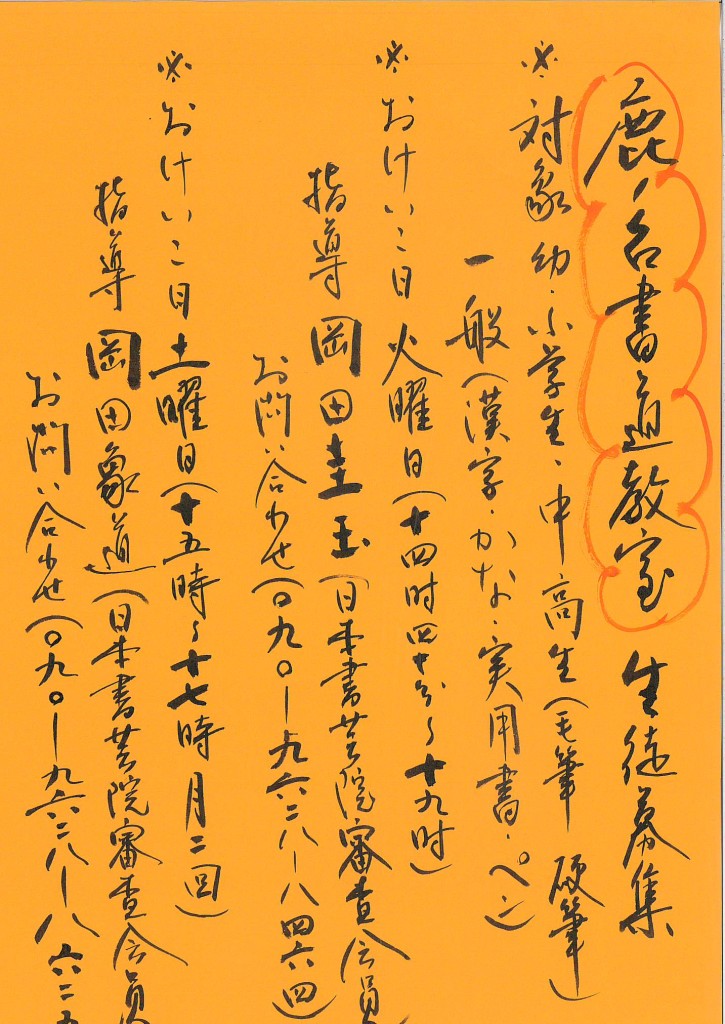 鹿ノ台書道教室 生徒募集
※対象 幼・小学生・中高生（毛筆 硬筆）
一般（漢字・かな・実用書・ペン）
※おけいこ日 火曜日（十四时四十分〜十九时）
指導 岡田圭玉（日本書芸院審査会員
お問い合わせ（〇九〇ー九六二八ー八四六四）
※おけいこ日 土曜日（十五時〜十七時 月二回）
指導 岡田象道（日本書芸院審査会員
お問い合わせ（〇九〇ー九六二八ー八六二